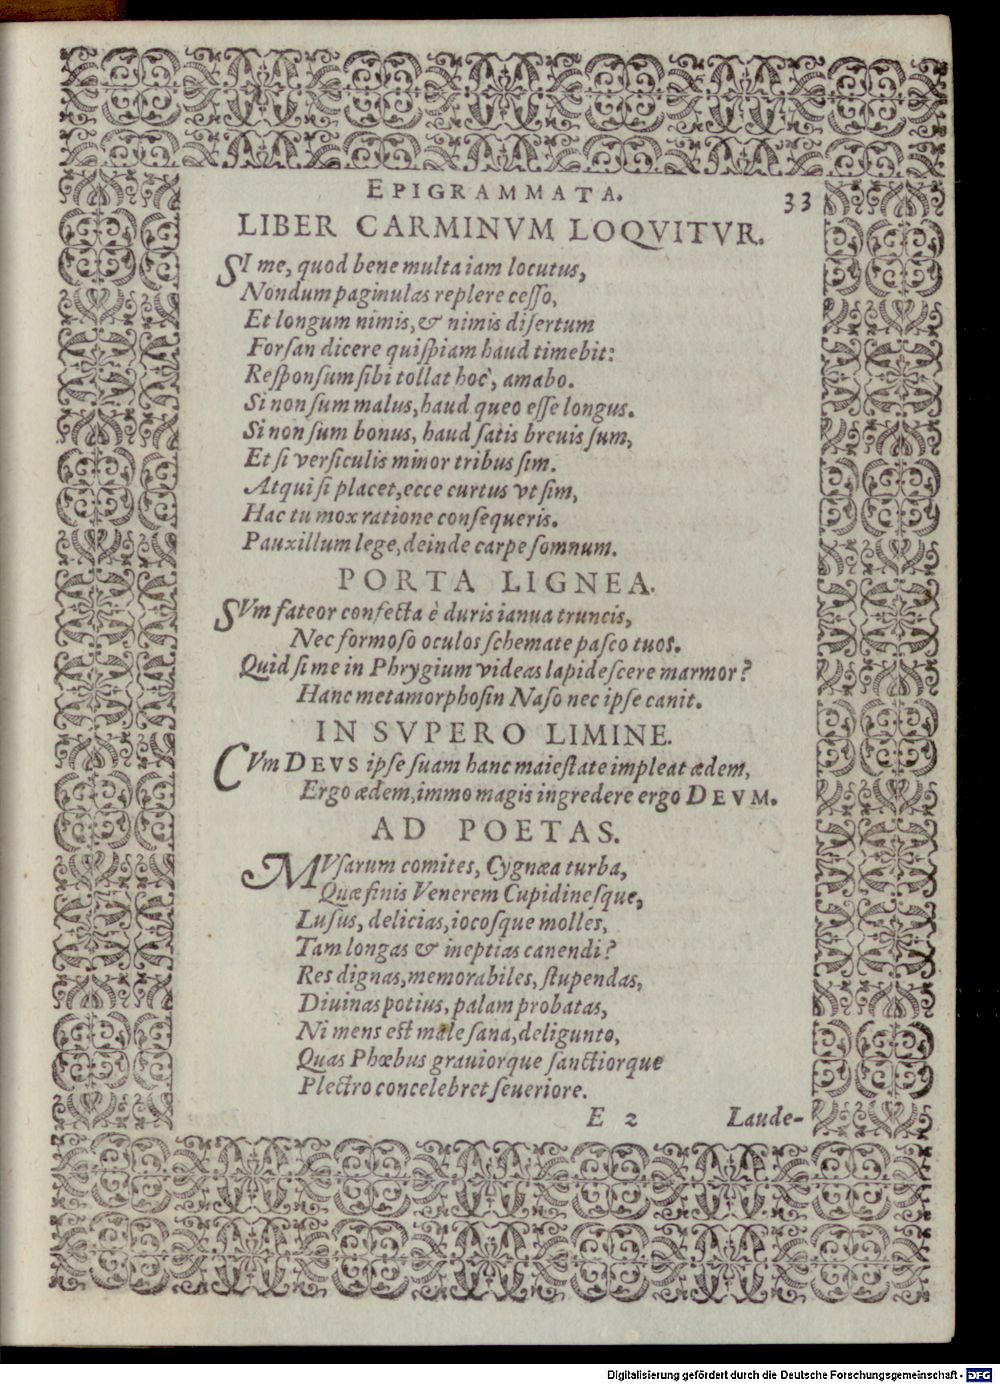 EPIGRAMMATA. 33
LIBER CARMINVM LOQVITVR.
SI me, quod bene multa iam locutus,
Nondum paginulas replere ceſſo,
Et longum nimis, & nimis diſertum
Forſan dicere quiſpiam haud timebit:
Reſponſum ſibi tollat hoc, amabo.
Si non ſum malus, haud queo eſſe longus.
Si non ſum bonus, haud ſatis breuis ſum,
Et ſi verſiculis minor tribus ſim.
Atqui ſi placet, ecce curtus vt ſim,
Hac tu mox ratione conſequeris.
Pauxillum lege, deinde carpe ſomnum.
PORTA LIGNEA.
SVm fateor confecta è duris ianua truncis,
Nec formoſo oculos ſchemate paſco tuos.
Quid ſi me in Phrygium videas lapideſcere marmor?
Hanc metamorphoſin Naſo nec ipſe canit.
IN SVPERO LIMINE.
CVm DEVS ipſe ſuam hanc maieſtate impleat ædem,
Ergo ædem, immo magis ingredere ergo DEVM.
AD POETAS.
MVſarum comites, Cygnæa turba,
Quæ finis Venerem Cupidineſque,
Luſus, delicias, iocoſque molles,
Tam longas & ineptias canendi?
Res dignas, memorabiles, ſtupendas,
Diuinas potius, palam probatas,
Ni mens eſt male ſana, deligunto,
Quas Phœbus grauiorque ſanctiorque
Plectro concelebret ſeueriore.
E 2 Laude-
Digitalisierung gefördert durch die Deutsche Forschungsgemeinschaft - DFG